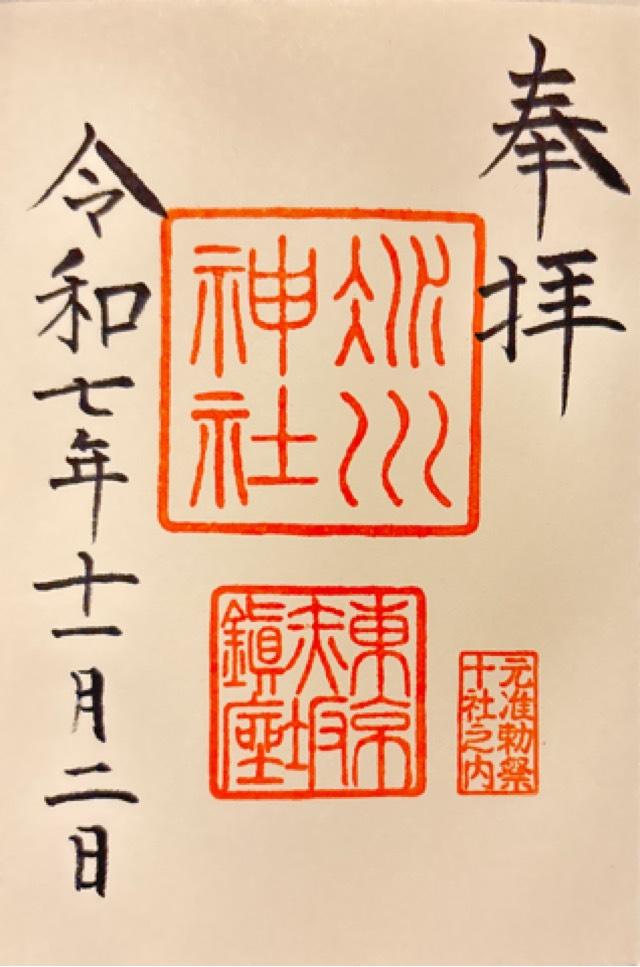 奉拝
氷川
神社
東京
赤坂
鎮座
元准勅祭
十社之内
令和七年十一月二日